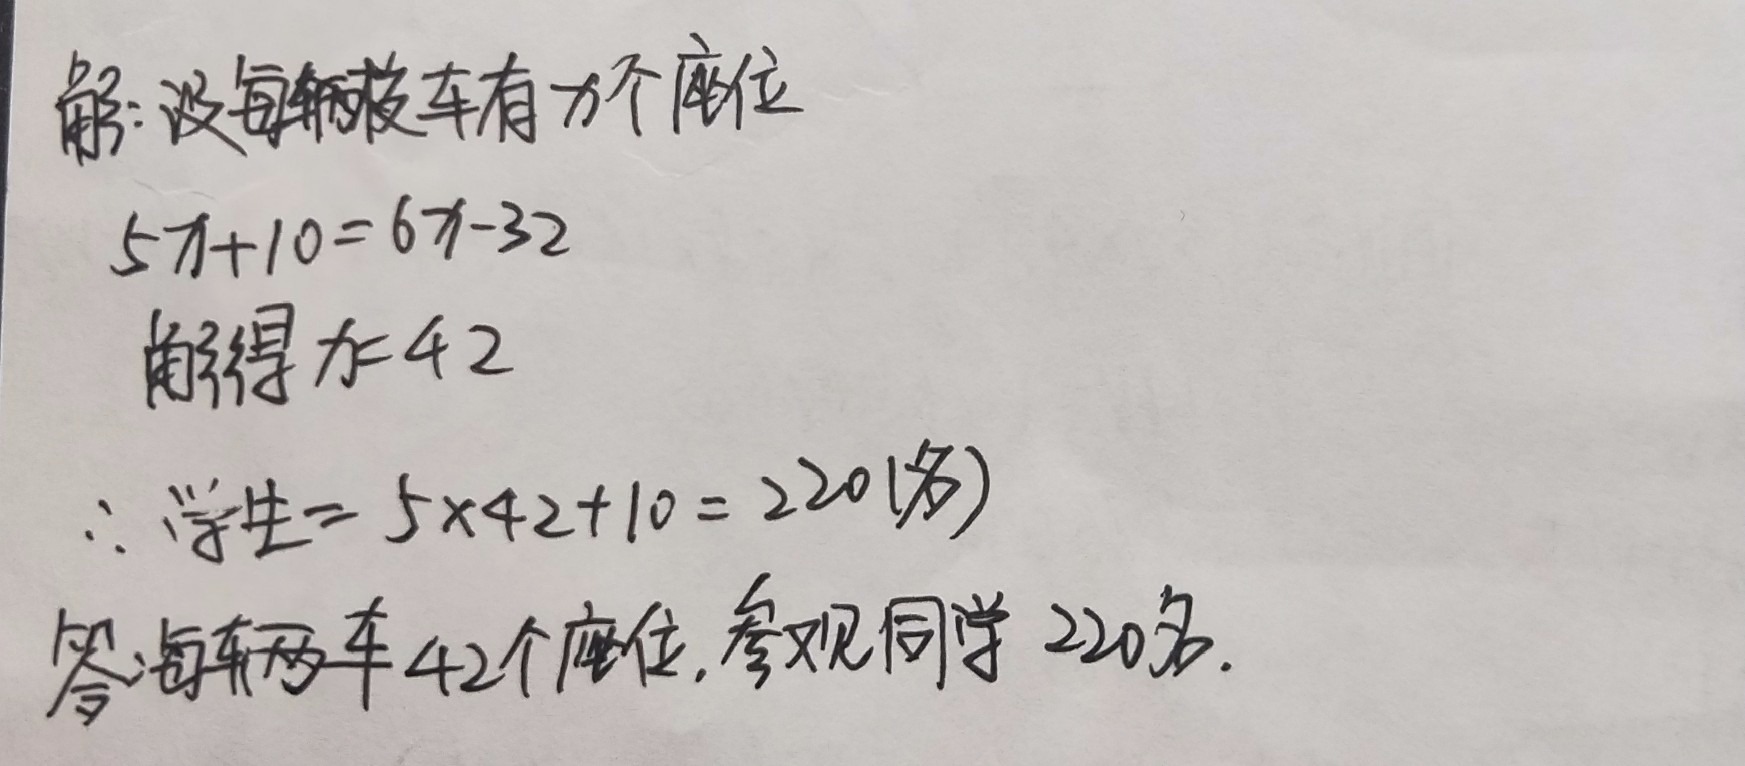 解:设每辆校车有x个座位
5x+10=6x-32
解得x=42
∴学生=5×42+10=220(名)
答:每辆车42个座位.参观同学220名.